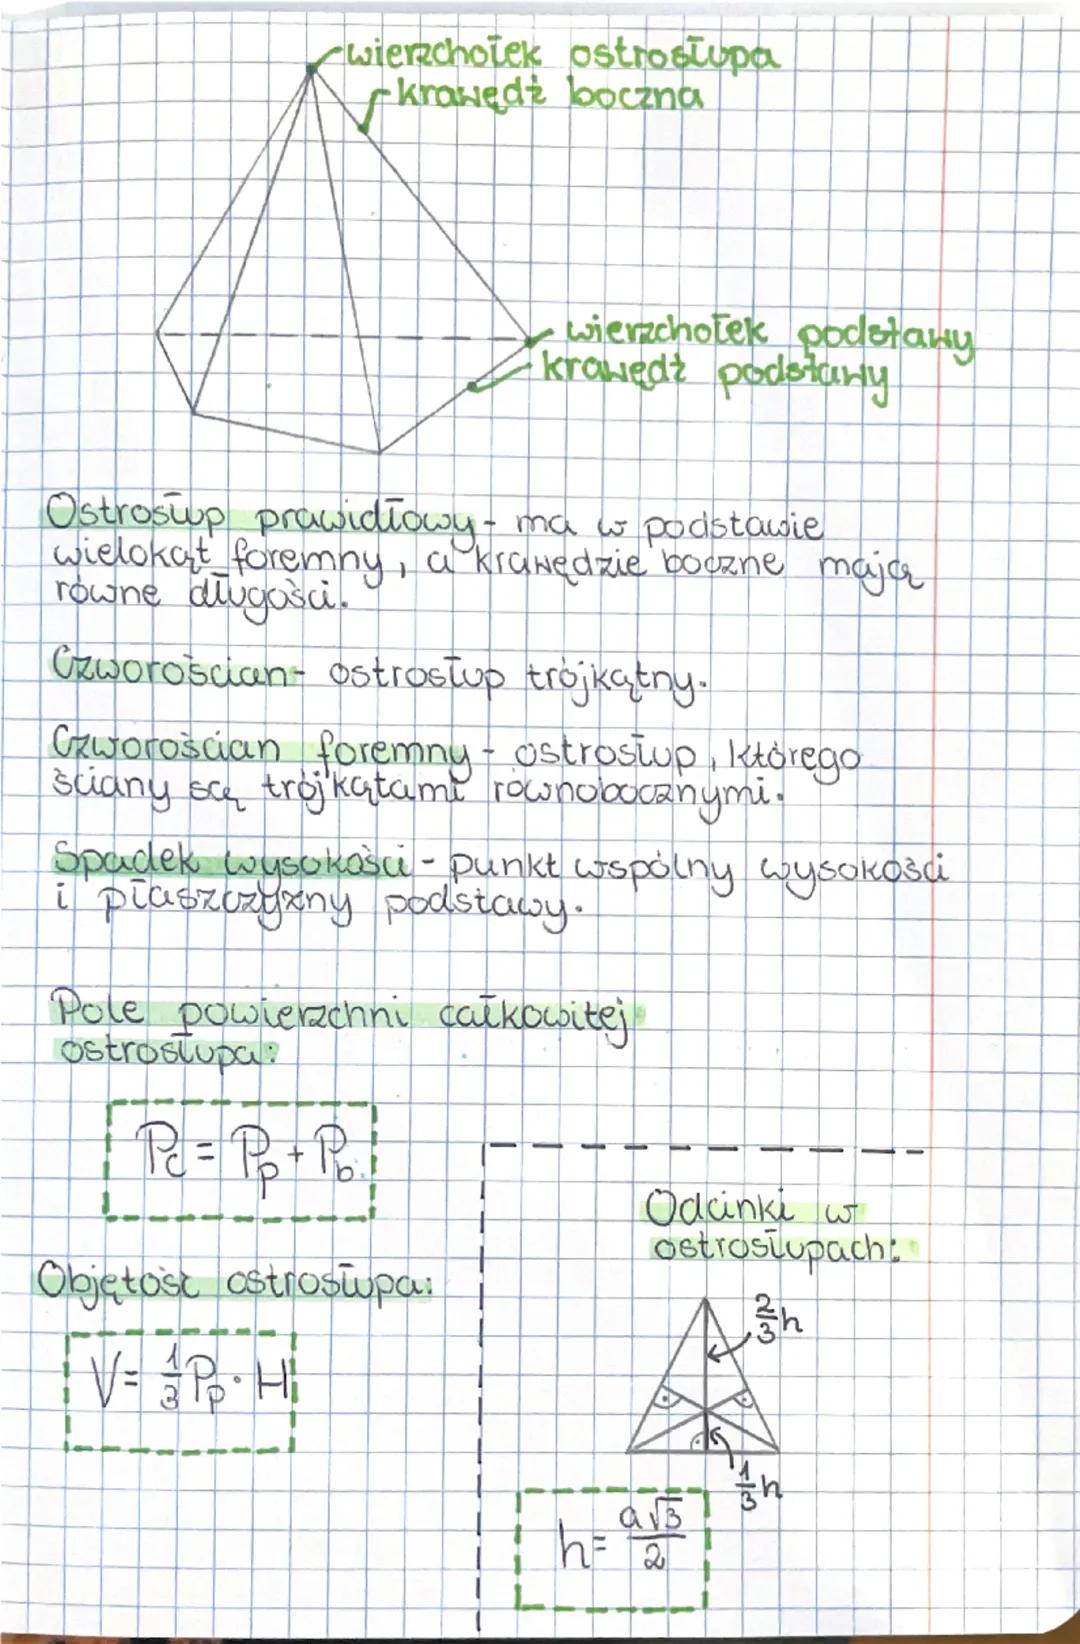 wierzchołek ostrosłupa
krawędź boczna
wierzchołek podstawy
krawędź podstawy
Ostrosłup prawidłowy - ma w podstawie
wielokąt foremny, a krawędzie boczne mają
równe długości.
Czworościan - ostrosłup trójkątny.
Czworościan foremny - ostrosłup, którego
ściany są trójkątami równobocznymi.
Spadek wysokości - punkt wspólny wysokości
i płaszczyzny podstawy.
Pole powierzchni całkowitej
ostrosłupa:
Pc = Pp + Pb.
Objętość ostrosłupa:
V = 1/3 Pp · H
Odcinki w
ostrosłupach:
2/3 h
1/3 h
h = a√3/2